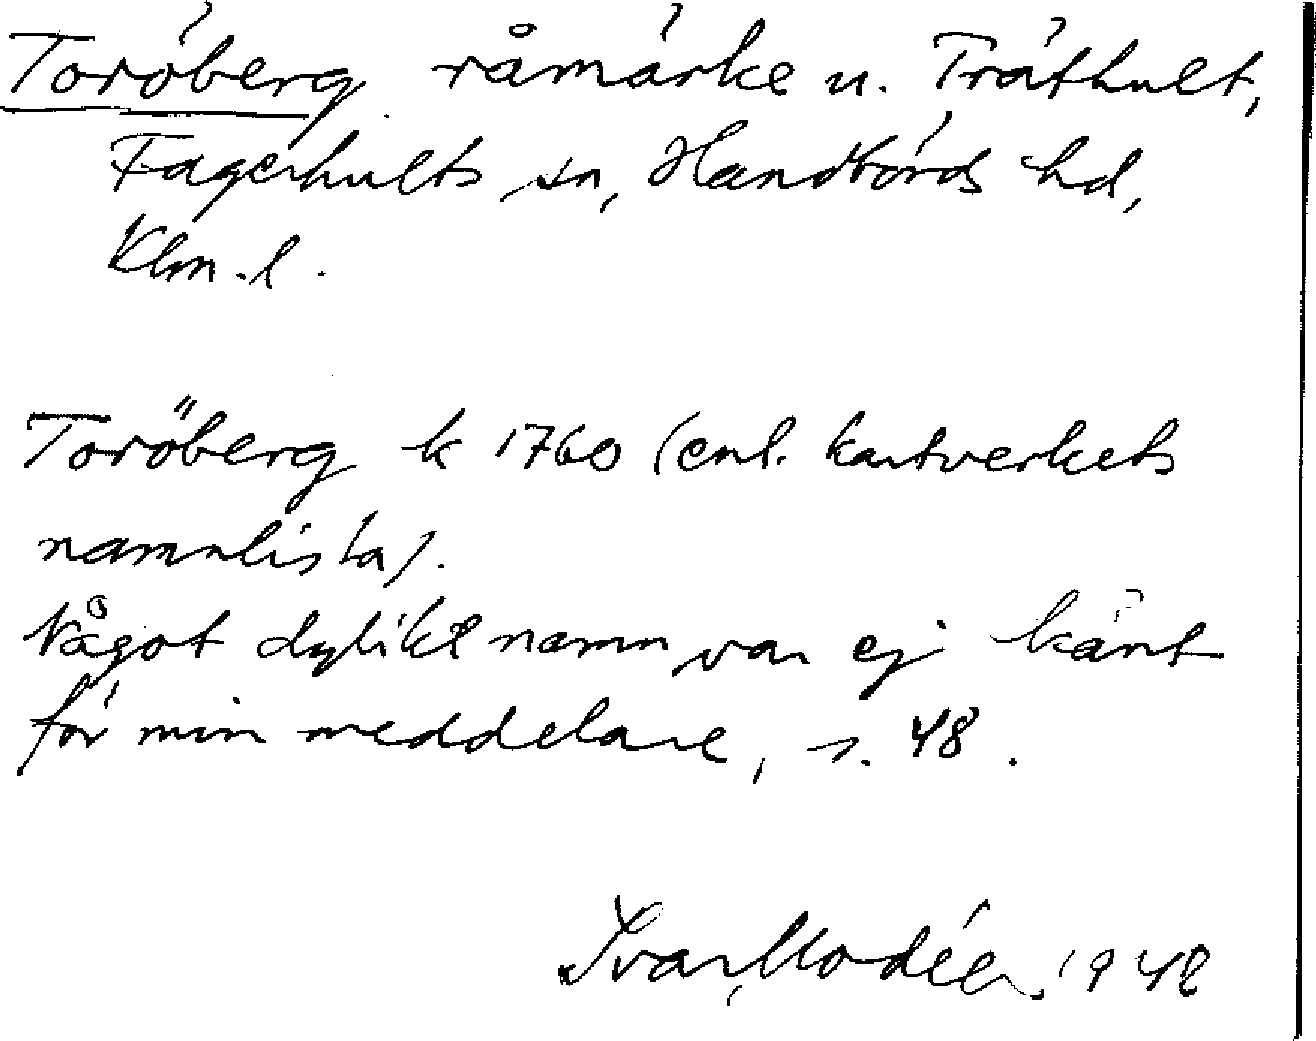 Toröberg råmärke u. Träthult,
Fagerhults sn, Handbörds hd,
Klm. l.
Toröberg k 1760 (enl. kartverkets
namnlista).
Något dylikt namn var ej känt
för min meddelare, s. 48.
Ivar Modéer 1948